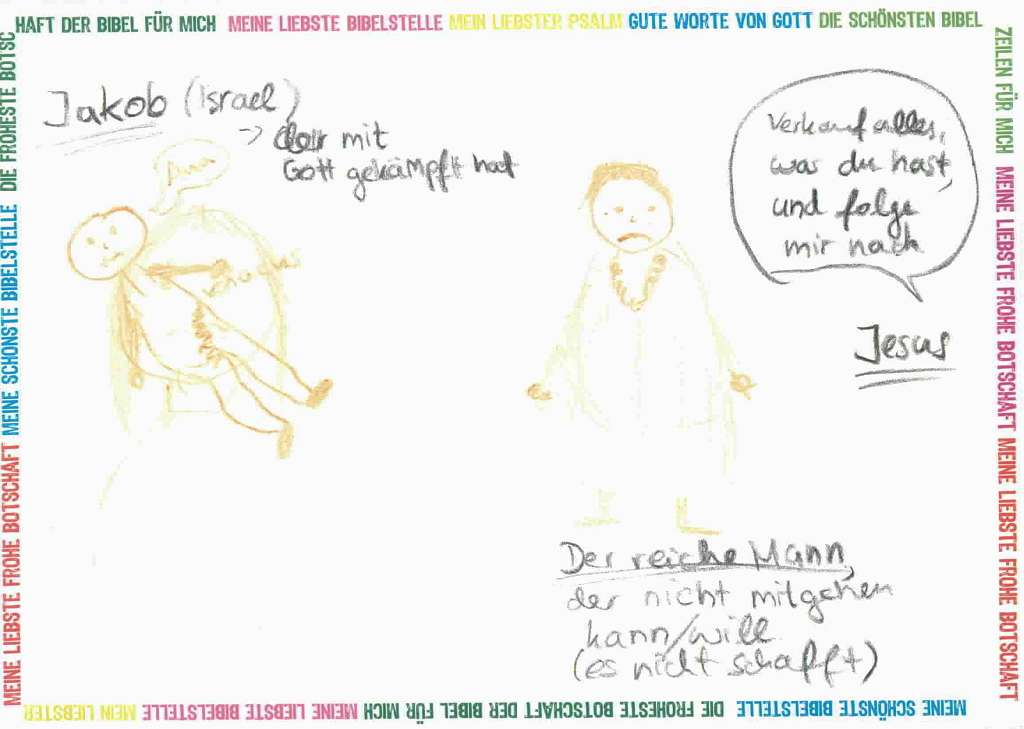 HAFT DER BIBEL FÜR MICH MEINE LIEBSTE BIBELSTELLE MEIN LIEBSTER PSALM GUTE WORTE VON GOTT DIE SCHÖNSTEN BIBEL
ZEILEN FÜR MICH MEINE LIEBSTE FROHE BOTSCHAFT MEINE LIEBSTE FROHE BOTSCHAFT
MEINE SCHÖNSTE BIBELSTELLE DIE FROHESTE BOTSCHAFT DER BIBEL FÜR MICH MEINE LIEBSTE BIBELSTELLE MEIN LIEBSTER
MEINE LIEBSTE FROHE BOTSCHAFT MEINE SCHÖNSTE BIBELSTELLE DIE FROHESTE BOTSC
Jakob (Israel)
-> der mit
Gott gekämpft hat
Verkauf alles,
was du hast,
und folge
mir nach
Jesus
Der reiche Mann,
der nicht mitgehen
kann/will
(es nicht schafft)